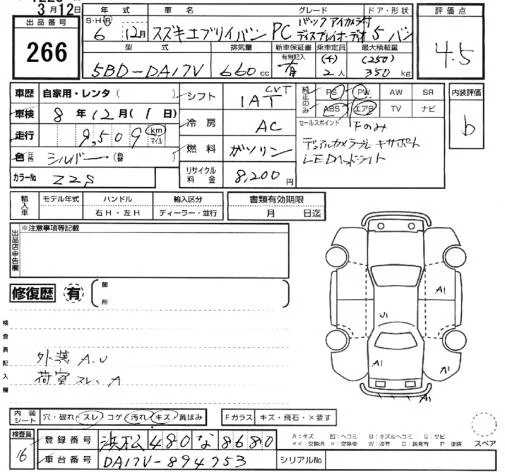 3月12日
出品番号
266
年式 車名 グレード ドア・形状
S・H・R 6年 12月 スズキエブリイバン PC バックアイカメラ付ディスプレイオーディオ 5 バン
型式 排気量 新車保証書 乗車定員 最大積載量
5BD-DA17V 660cc 有無記入 有 (4) 2人 (250) 350kg
評価点
4.5
車歴 自家用・レンタ ( )
車検 8年12月(1日)
走行 9,509 km マイル
色 シルバー
カラーNo Z2S
シフト 1AT CVT
冷房 AC
燃料 ガソリン
リサイクル料金 8,200円
純正のみ PS PW AW SR
ABS エアB TV ナビ
セールスポイント Fのみ
デュアルカメラブレーキサポート
LEDヘッドライト
内装評価
b
輸入車 モデル年式 ハンドル 輸入区分
右H・左H ディーラー・並行
書類有効期限
月 日迄
出品店申告欄
※注意事項等記載
修復歴 有 箇所
検査員記入欄
外装 A.U
荷室スレ、A
A1
A1
U1
A1
内装シート 穴・破れ・スレ コゲ 汚れ キズ 黄ばみ
Fガラス キズ・飛石・×要す
検査員
16
登録番号 浜松 480 な 8680
車台番号 DA17V-894753
シリアルNo
スペア